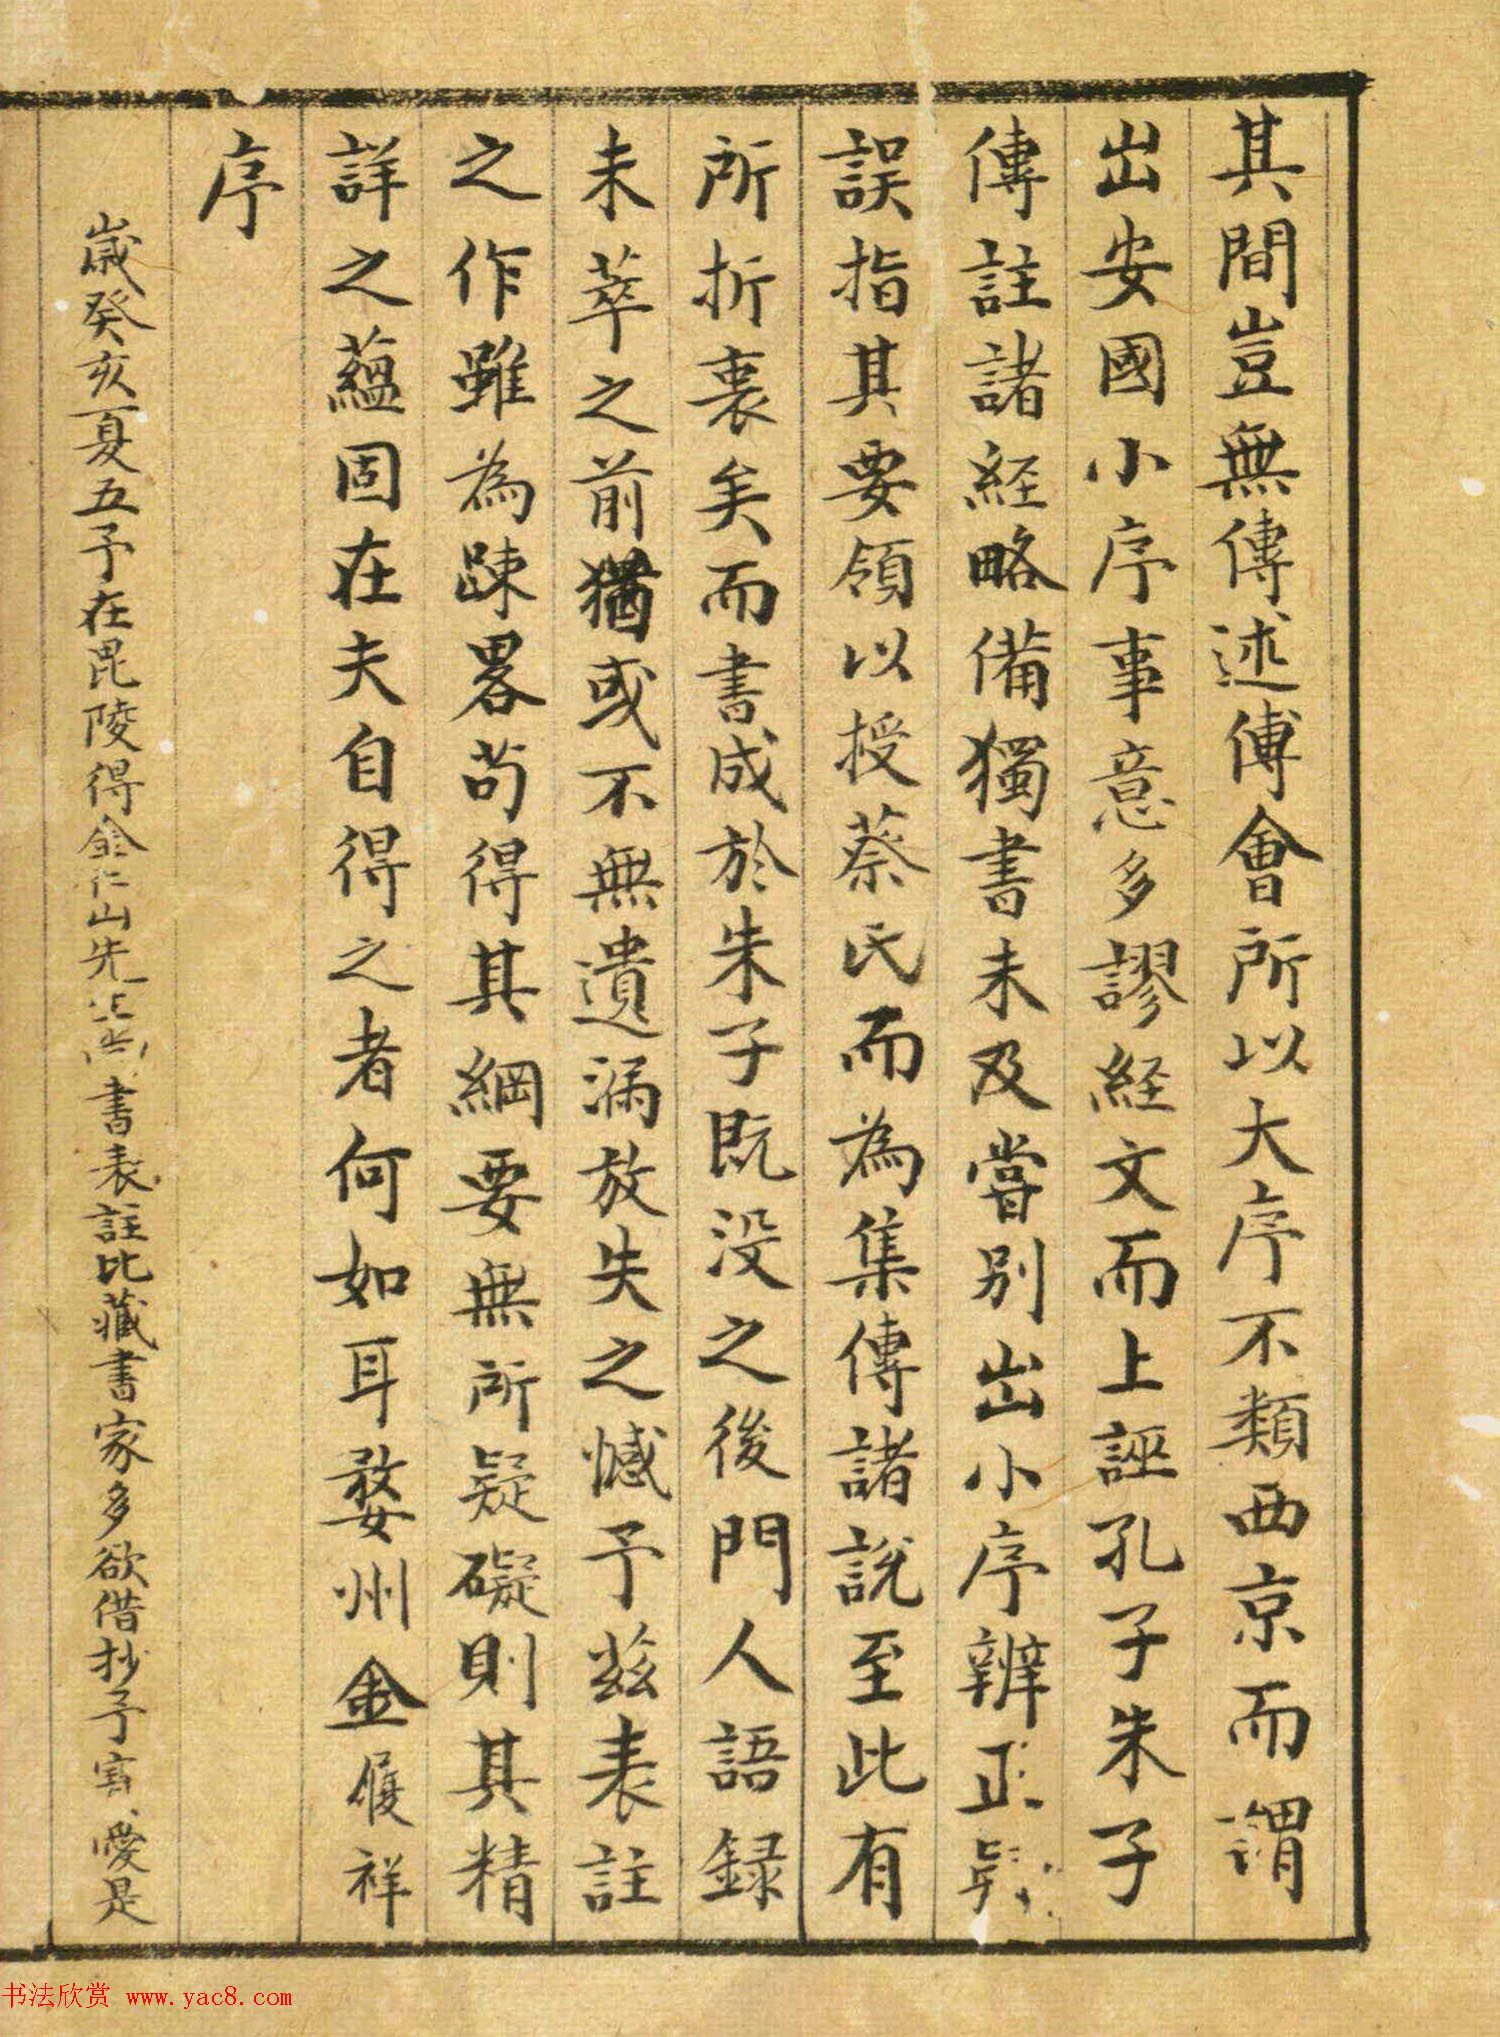 其間豈無傳述傅會所以大序不類西京而謂
出安國小序事意多謬経文而上誣孔子朱子
傳註諸経略備獨書未及嘗別出小序辨正
誤指其要領以授蔡氏而為集傳諸說至此有
所折衷矣而書成於朱子既没之後門人語録
未萃之前猶或不無遺漏放失之憾予茲表註
之作雖為踈畧苟得其綱要無所疑礙則其精
詳之蘊固在夫自得之者何如耳婺州金履祥
序
歲癸亥夏五予在毘陵得金仁山先尚書表註比藏書家多欲借抄予寳愛是
书法欣赏 www.yac8.com